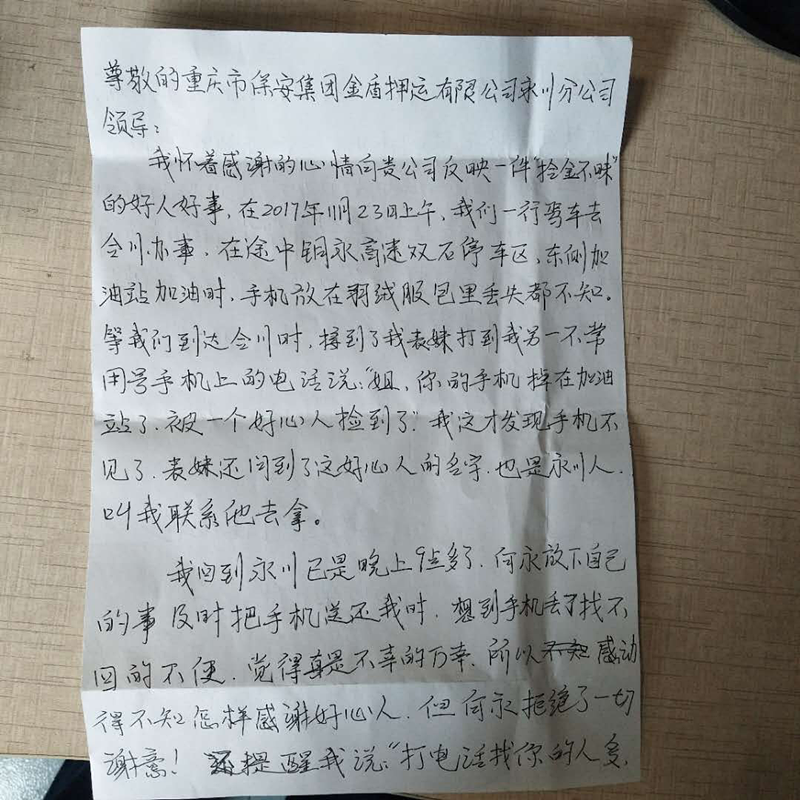 尊敬的重庆市保安集团金盾押运有限公司永川分公司
领导:
我怀着感谢的心情向贵公司反映一件"拾金不昧"
的好人好事,在2017年11月23日上午,我们一行驾车去
合川办事,在途中铜永高速双石停车区,东侧加
油站加油时,手机放在羽绒服包里丢失都不知。
等我们到达合川时,接到了我表妹打到我另一不常
用号手机上的电话说:"姐,你的手机掉在加油
站了,被一个好心人捡到了"我这才发现手机不
见了,表妹还问到了这好心人的名字,也是永川人,
叫我联系他去拿。
我回到永川已是晚上9点多了,何永放下自己
的事及时把手机送还我时,想到手机丢了找不
回的不便,觉得真是不幸的万幸,所以感动
得不知怎样感谢好心人,但何永拒绝了一切
谢意!还提醒我说:"打电话找你的人多,